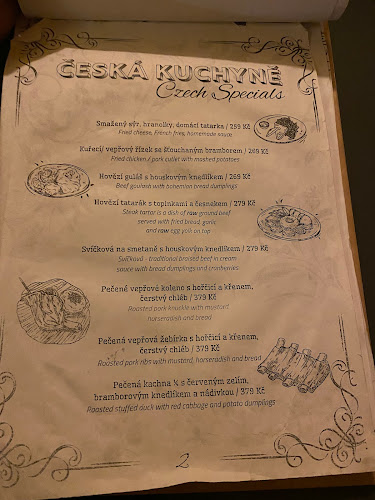 ČESKÁ KUCHYNĚ
Czech Specials
Smažený sýr, hranolky, domácí tatarka / 259 Kč
Fried cheese, French fries, homemade sauce
Kuřecí/ vepřový řízek se šťouchaným bramborem / 269 Kč
Fried chicken / pork cutlet with mashed potatoes
Hovězí guláš s houskovým knedlíkem / 269 Kč
Beef goulash with bohemian bread dumplings
Hovězí tatarák s topinkami a česnekem / 279 Kč
Steak tartar is a dish of raw ground beef
served with fried bread, garlic
and raw egg yolk on top
Svíčková na smetaně s houskovým knedlíkem / 279 Kč
Svíčková - traditional braised beef in cream
sauce with bread dumplings und cranberries
Pečené vepřové koleno s hořčicí a křenem,
čerstvý chléb / 379 Kč
Roasted pork knuckle with mustard
horseradish and bread
Pečená vepřová žebírka s hořčicí a křenem,
čerstvý chléb / 379 Kč
Roasted pork ribs with mustard, horseradish and bread
Pečená kachna ¼ s červeným zelím,
bramborovým knedlíkem a nádivkou / 379 Kč
Roasted stuffed duck with red cabbage and potato dumplings
2